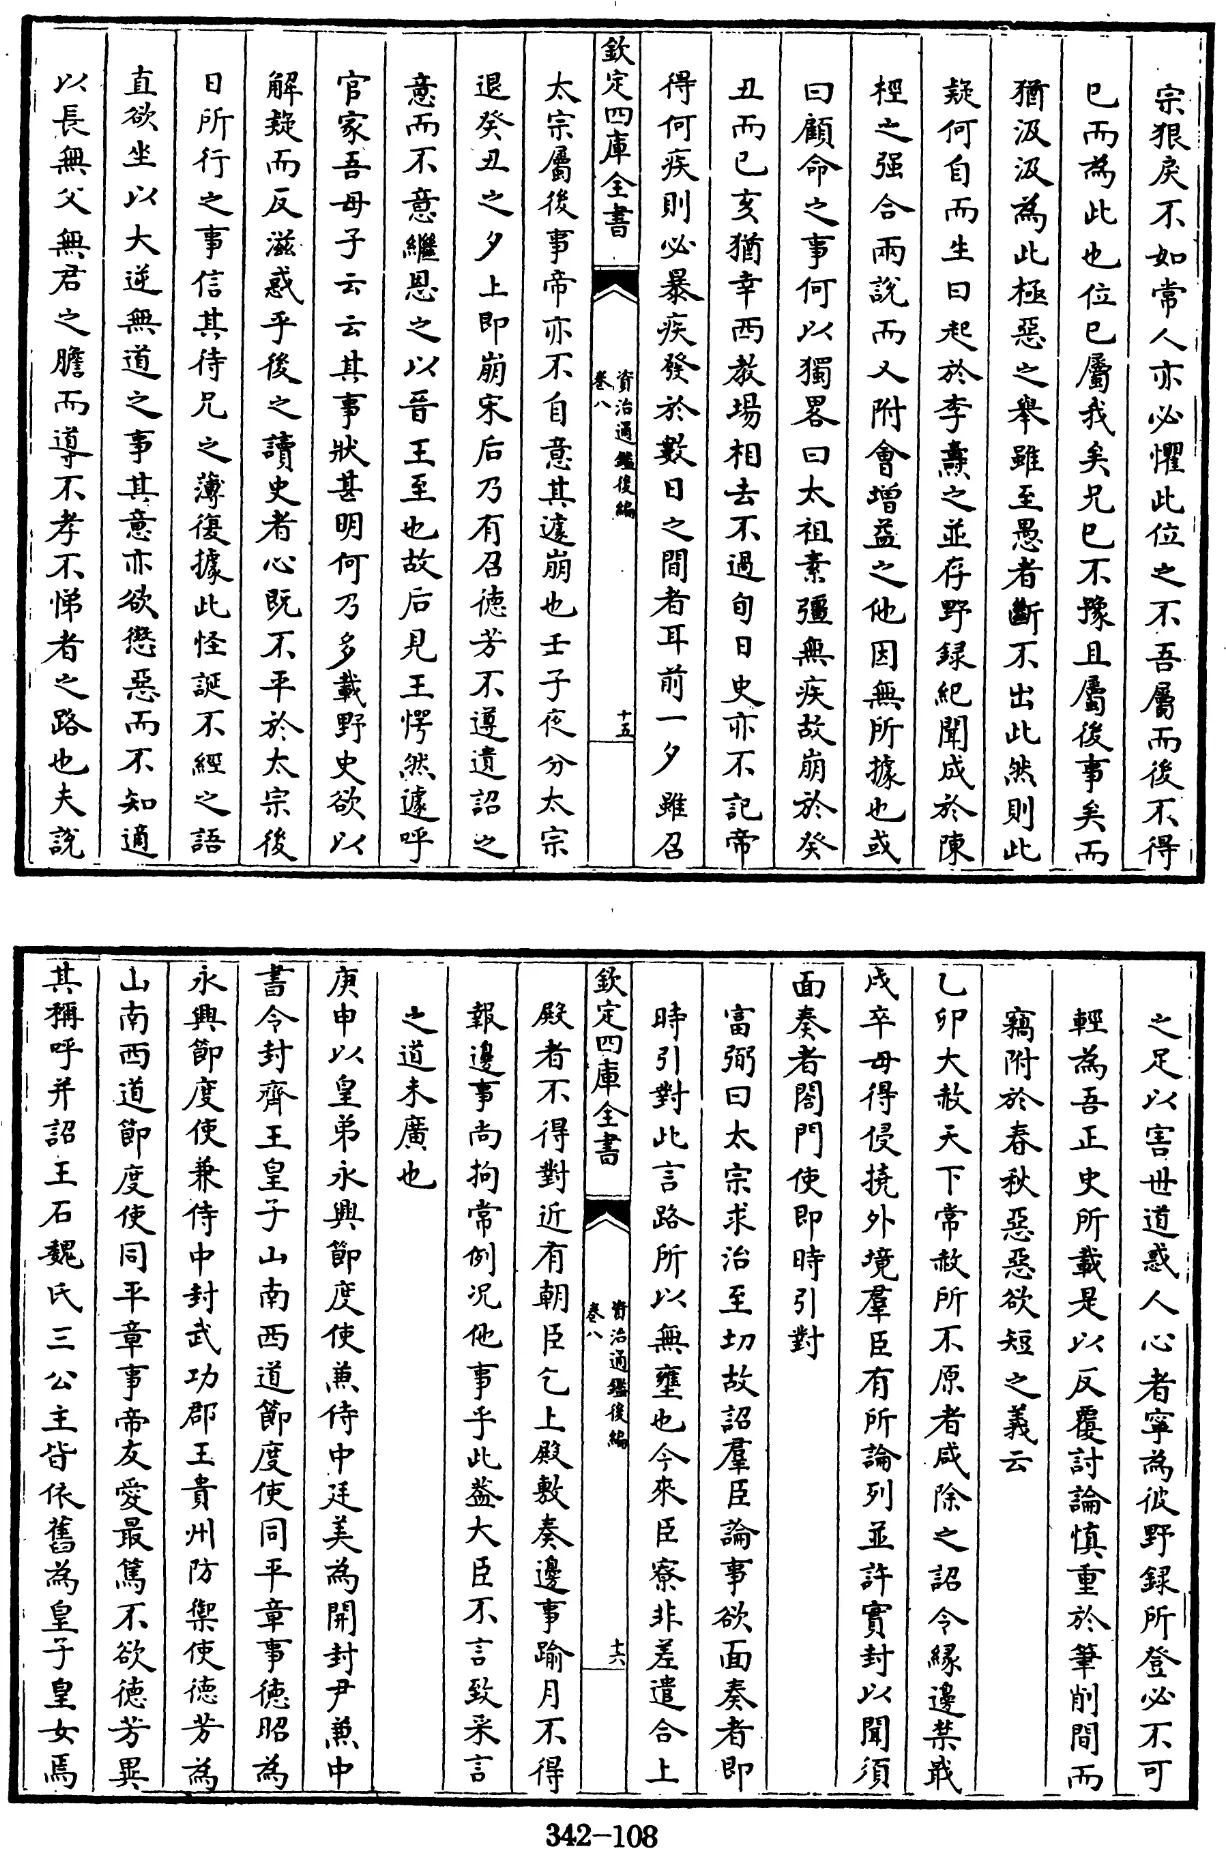 宗狠戾不如常人亦必懼此位之不吾屬而後不得
已而為此也位已屬我矣兄已不豫且屬後事矣而
猶汲汲為此極惡之舉雖至愚者斷不出此然則此
疑何自而生曰起於李燾之並存野録紀聞成於陳
桱之强合兩説而又附會增益之他因無所據也或
曰顧命之事何以獨畧曰太祖素彊無疾故崩於癸
丑而已亥猶幸西教場相去不過旬日史亦不記帝
得何疾則必暴疾發於數日之間者耳前一夕雖召
欽定四庫全書
資治通鑑後編
卷八
十五
太宗屬後事帝亦不自意其遽崩也壬子夜分太宗
退癸丑之夕上即崩宋后乃有召德芳不遵遺詔之
意而不意繼恩之以晉王至也故后見王愕然遽呼
官家吾母子云云其事狀甚明何乃多載野史欲以
解疑而反滋惑乎後之讀史者心既不平於太宗後
日所行之事信其待兄之薄復據此怪誕不經之語
直欲坐以大逆無道之事其意亦欲懲惡而不知適
以長無父無君之膽而導不孝不悌者之路也夫説
之足以害世道惑人心者寧為彼野録所登必不可
輕為吾正史所載是以反覆討論慎重於筆削間而
竊附於春秋惡惡欲短之義云
乙卯大赦天下常赦所不原者咸除之詔令緣邊禁戢
戍卒毋得侵撓外境羣臣有所論列並許實封以聞須
面奏者閤門使即時引對
富弼曰太宗求治至切故詔羣臣論事欲面奏者即
時引對此言路所以無壅也今來臣寮非差遣合上
欽定四庫全書
資治通鑑後編
卷八
十六
殿者不得對近有朝臣乞上殿敷奏邊事踰月不得
報邊事尚拘常例况他事乎此葢大臣不言致采言
之道未廣也
庚申以皇弟永興節度使兼侍中廷美為開封尹兼中
書令封齊王皇子山南西道節度使同平章事德昭為
永興節度使兼侍中封武功郡王貴州防禦使德芳為
山南西道節度使同平章事帝友愛最篤不欲德芳異
其稱呼并詔王石魏氏三公主皆依舊為皇子皇女焉
342-108